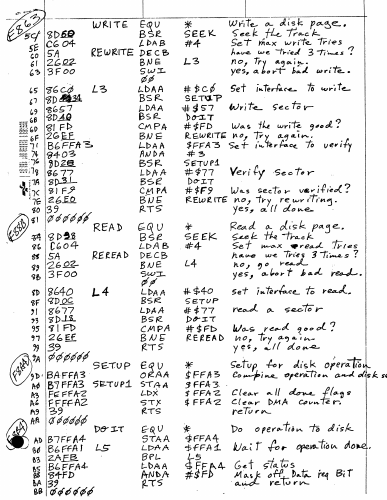 E863 WRITE EQU * Write a disk page.
8D BSR SEEK Seek the Track
5E C604 LDAB #4 Set max write tries
60 5A REWRITE DECB have we tried 3 Times?
61 2602 BNE L3 no, try again.
63 3F00 SWI yes, abort bad write.
ØØ
65 86C0 L3 LDAA #$CØ Set interface to write
67 8D BSR SETUP
69 8657 LDAA #$57 Write sector
8D BSR DOIT
81FD CMPA #$FD Was the write good?
26EF BNE REWRITE no, Try again.
B6FFA3 LDAA $FFA3 Set interface to verify
8403 ANDA #3
8D BSR SETUP1
8677 LDAA #$77 Verify sector
7A 8D31 BSR DOIT
81F9 CMPA #$F9 Was sector verified?
26E0 BNE REWRITE no, try rewriting.
80 39 RTS yes, all done
81 ØØØØØØ
READ EQU * Read a disk page.
8D BSR SEEK seek the track
86 C604 LDAB #4 Set max read tries
88 5A REREAD DECB have we tried 3 Times?
89 2602 BNE L4 no, go read
8B 3F00 SWI yes, abort bad read.
ØØ
8D 8640 L4 LDAA #$40 set interface to read.
8F 8D0C BSR SETUP
91 8677 LDAA #$77 read a sector
93 8D18 BSR DOIT
95 81FD CMPA #$FD Was read good?
97 26EF BNE REREAD no, try again
99 39 RTS yes, all done
9A ØØØØØØ
SETUP EQU * Setup for disk operation
9D BAFFA3 ORAA $FFA3 Combine operation and disk
A0 B7FFA3 SETUP1 STAA $FFA3
A3 FEFFA2 LDX $FFA2 Clear all done flags
A6 FFFFA2 STX $FFA2 Clear DMA counter.
A9 39 RTS return
AA ØØØØØØ
DOIT EQU * Do operation to disk
AD B7FFA4 STAA $FFA4
B0 B6FFA1 L5 LDAA $FFA1 Wait for operation done.
B3 2AFB BPL L5
B5 B6FFA4 LDAA $FFA4 Get status
B8 84FD ANDA #$FD Mask off Data req Bit
BA 39 RTS and return
BB ØØØØØØ